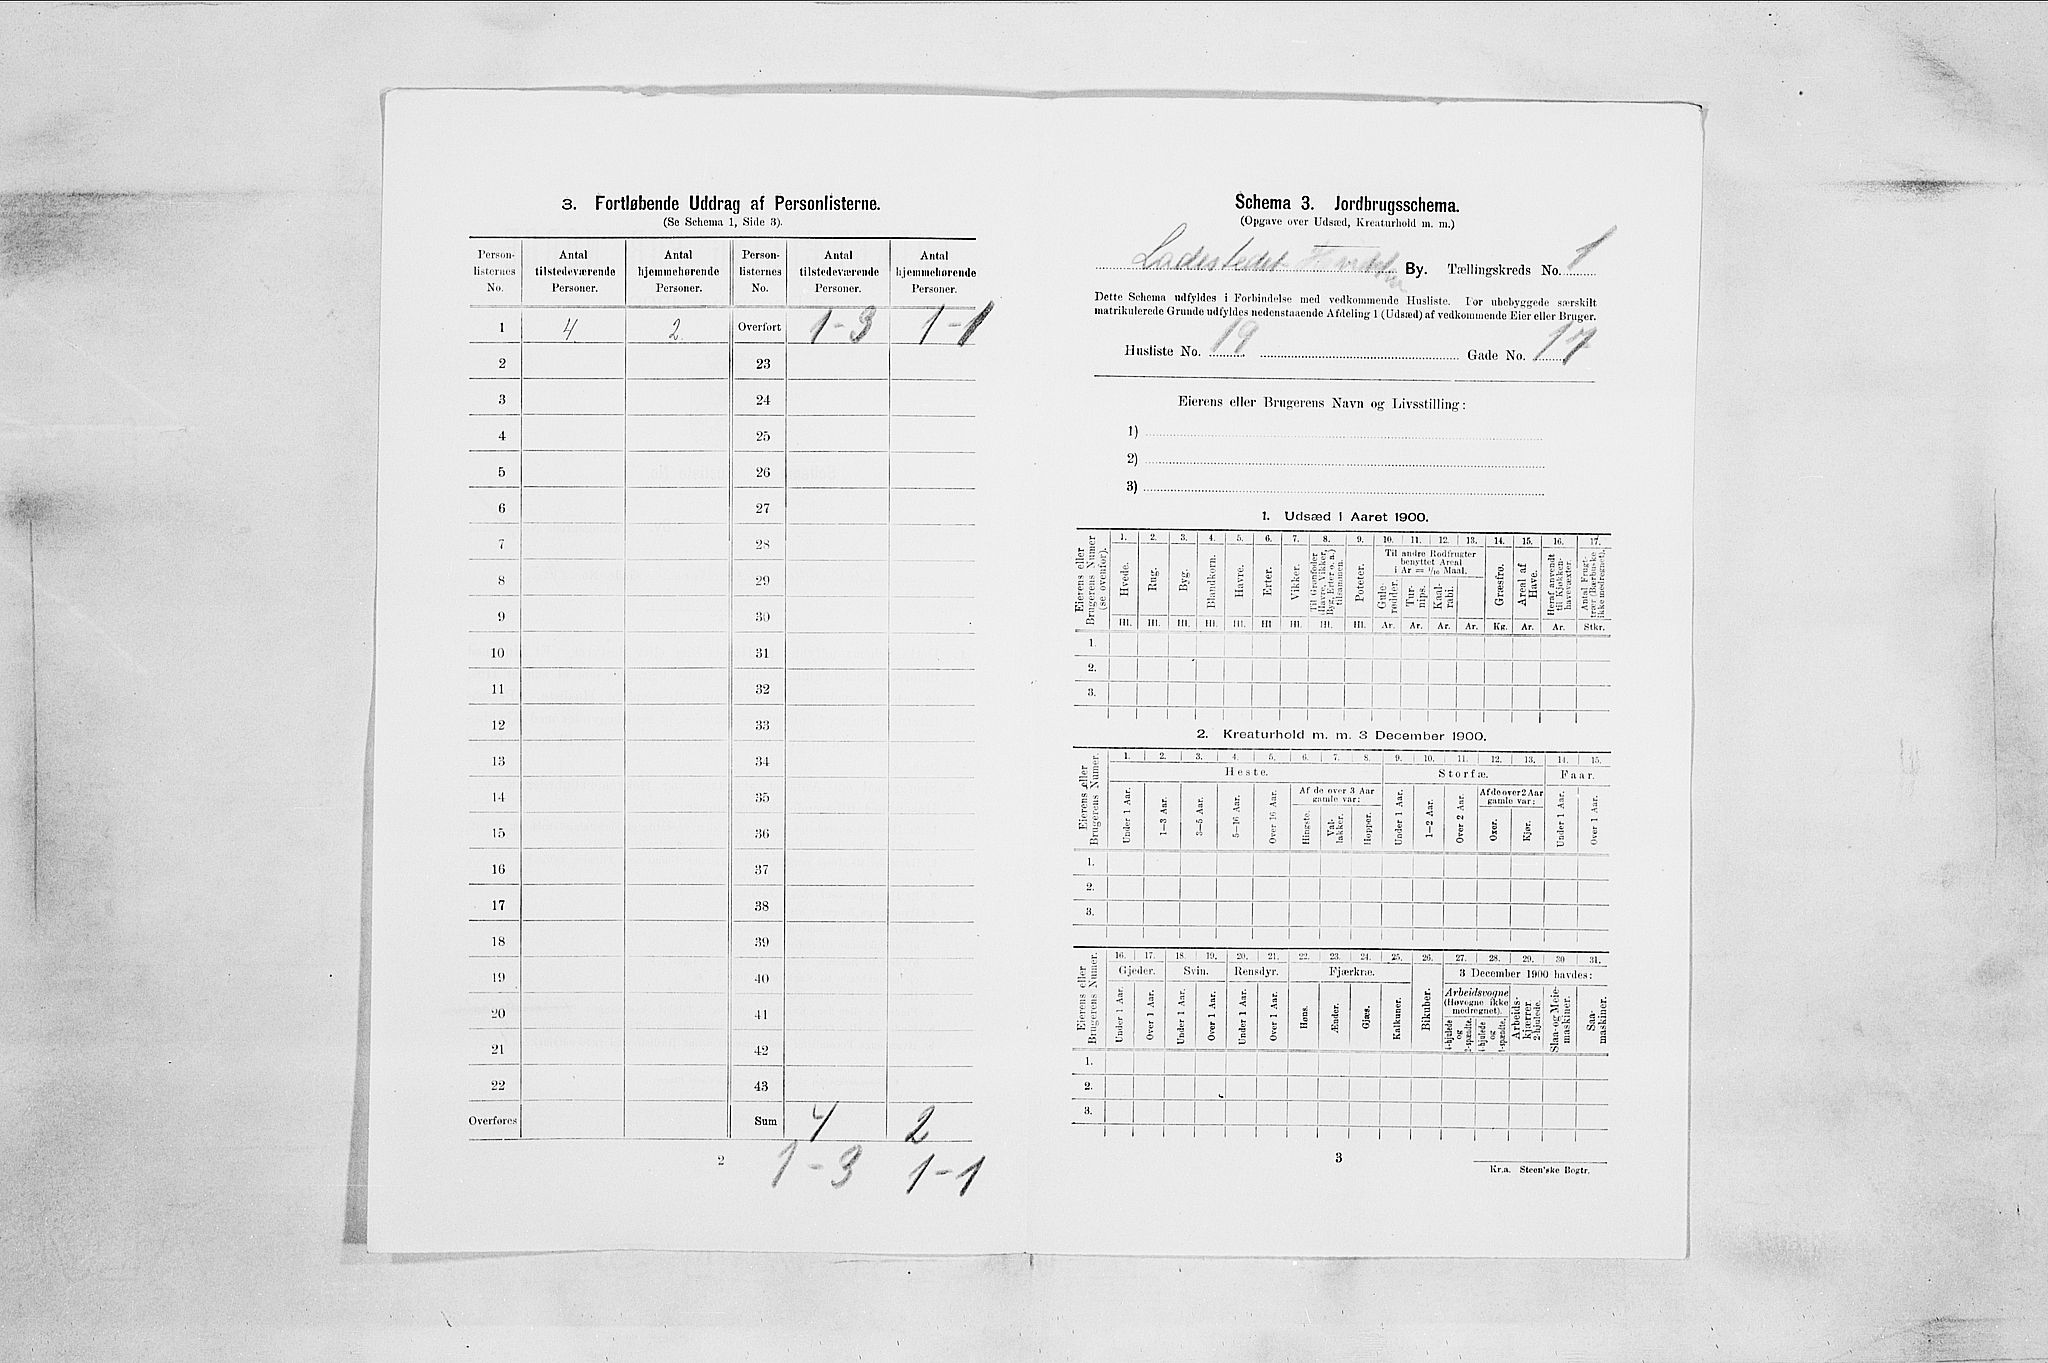 3. Fortløbende Uddrag af Personlisterne.
(Se Schema 1, Side 3).
Person-listernes No. | Antal tilstedeværende Personer. | Antal hjemmehørende Personer. | Person-listernes No. | Antal tilstedeværende Personer. | Antal hjemmehørende Personer.
1 | 4 | 2 | Overført | 1-3 | 1-1
2 | 23
3 | 24
4 | 25
5 | 26
6 | 27
7 | 28
8 | 29
9 | 30
10 | 31
11 | 32
12 | 33
13 | 34
14 | 35
15 | 36
16 | 37
17 | 38
18 | 39
19 | 40
20 | 41
21 | 42
22 | 43
Overføres | Sum | 4 | 2
2
1-3 1-1
Schema 3. Jordbrugsschema.
(Opgave over Udsæd, Kreaturhold m. m.)
Ladestedet By. Tællingskreds No. 1
Dette Schema udfyldes i Forbindelse med vedkommende Husliste. For ubebyggede særskilt
matrikulerede Grunde udfyldes nedenstaaende Afdeling 1 (Udsæd) af vedkommende Eier eller Bruger.
Husliste No. 19 Gade No. 17
Eierens eller Brugerens Navn og Livsstilling:
1)
2)
3)
1. Udsæd i Aaret 1900.
Eierens eller Brugerens Numer (se ovenfor).
1. 2. 3. 4. 5. 6. 7. 8. 9. 10. 11. 12. 13. 14. 15. 16. 17.
Hvede. Rug. Byg. Blandkorn. Havre. Erter. Vikker. Til Grønfoder (Havre, Vikker, Byg, Erter o. a.) tilsammen. Poteter.
Til andre Rodfrugter benyttet Areal i Ar = 1/10 Maal.
Gule-rødder. Tur-nips. Kaal-rabi. Græsfrø. Areal af Have. Heraf anvendt til Kjøkken-havevæxter. Antal Frugt-trær (Bærbuske ikke medregnet).
Hl. Hl. Hl. Hl. Hl. Hl Hl. Hl. Hl. Ar. Ar. Ar. Ar. Kg. Ar. Ar. Stkr.
1.
2.
3.
2. Kreaturhold m. m. 3 December 1900.
Eierens eller Brugerens Numer.
1. 2. 3. 4. 5. 6. 7. 8. 9. 10. 11. 12. 13. 14. 15.
Heste. Storfæ. Faar.
Af de over 3 Aar gamle var: Af de over 2 Aar gamle var:
Under 1 Aar. 1—3 Aar. 3—5 Aar. 5—16 Aar. Over 16 Aar. Hingste. Val-lakker. Hopper. Under 1 Aar. 1—2 Aar. Over 2 Aar. Oxer. Kjør. Under 1 Aar. Over 1 Aar.
1.
2.
3.
Eierens eller Brugerens Numer.
16. 17. 18. 19. 20. 21. 22. 23. 24. 25. 26. 27. 28. 29. 30 31.
Gjeder. Svin. Rensdyr. Fjærkræ. 3 December 1900 havdes:
Arbeidsvogne (Høvogne ikke medregnet).
Under 1 Aar. Over 1 Aar. Under 1 Aar. Over 1 Aar. Under 1 Aar. Over 1 Aar. Høns. Ænder. Gjæs. Kalkuner. Bikuber. 4-hjulede og 2-spændte. 4-hjulede og 1-spændte. Arbeids-kjærrer 2-hjulede. Slaa- og Meie-maskiner. Saa-maskiner.
1.
2.
3.
3
Kr.a. Steen'ske Bogtr.